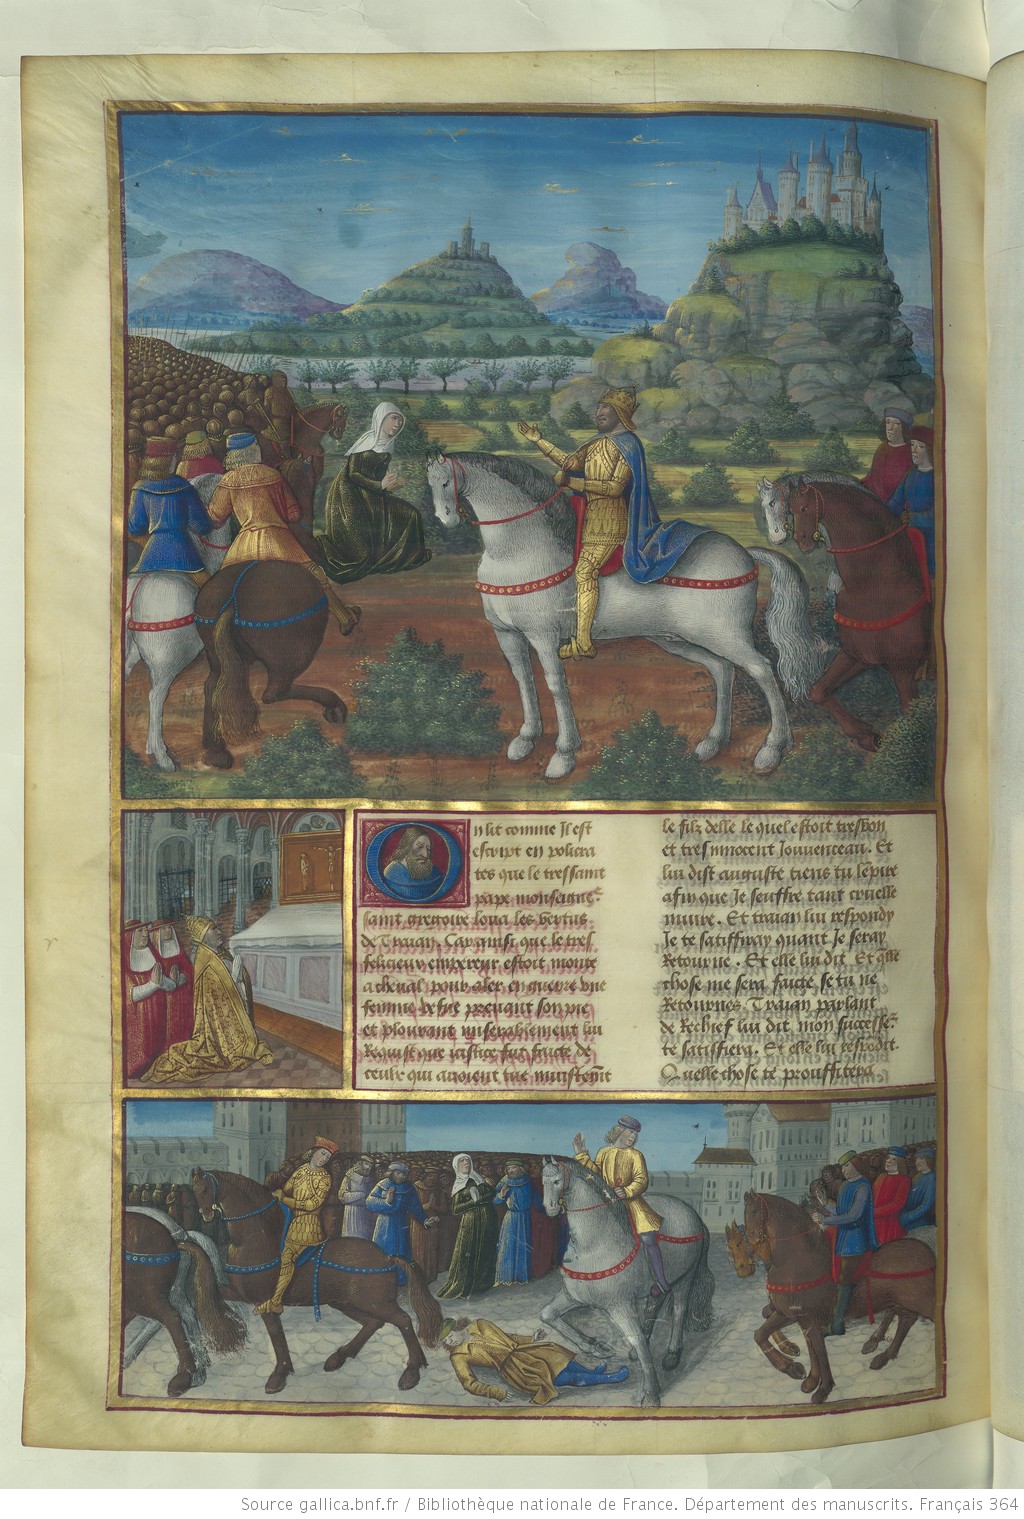 On lit comme Il est
escript en policra
tes que le tressaint
pape monseigne᷑
saint gregoire loua les vertus
de Traian. Car ainsi que le tres
felicieux empereur estoit monte
a cheval pour aler en guerre vne
femme vefve prenant son pie
et plourant miserablement lui
Requist que iustice fut faicte de
ceulx qui auoient tue
le filz delle le quel estoit tresbon
et tresinnocent Jouuenceau. Et
lui dist auguste tiens tu lempire
afin que Je seuffre tant cruelle
Iniure. Et traian lui respondy
Je te satiffray quant Je seray
Retourne. Et elle lui dit. Et q̃lle
chose me sera faicte se tu ne
Retournes. Traian parlant
de Rechief lui dit mon successe᷑
te satisfiera. Et elle lui respondit.
Quelle chose te prouffitera
Source gallica.bnf.fr / Bibliothèque nationale de France. Département des manuscrits. Français 364